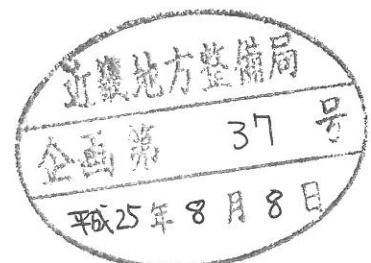 近畿地方整備局
企画第 37 号
平成25年8月8日